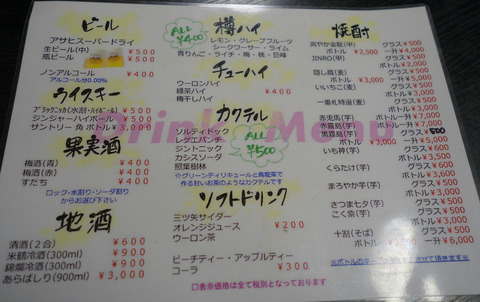 Drink Menu
ビール
アサヒスーパードライ
生ビール(中) ￥500
瓶ビール ￥500
ノンアルコール ￥400
アルコール分0.00%
ウイスキー
ブラックニッカ(水割・ハイボール) ￥500
ジンジャーハイボール ￥500
サントリー 角 ボトル ￥3,000
果実酒
梅酒(青) ￥400
梅酒(赤) ￥400
すだち ￥400
ロック・水割り・ソーダ割り
からお選び下さい
地酒
清酒(2合) ￥600
米鶴冷酒(300ml) ￥900
錦爛冷酒(300ml) ￥900
あらばしり(900ml) ￥3,000
樽ハイ
ALL ￥400
レモン・グレープフルーツ
シークワーサー・ライム
青りんご・ライチ・梅・桃・巨峰
チューハイ
ウーロンハイ
緑茶ハイ ￥400
梅干しハイ
カクテル
ALL ￥500
ソルティドック
レゲエパンチ
ジントニック
カシスソーダ
照葉樹林
☆グリーンティリキュールと烏龍茶で
作る甘いお茶のようなカクテルです
ソフトドリンク
三ツ矢サイダー
オレンジジュース ￥200
ウーロン茶
ピーチティー・アップルティー
コーラ ￥300
□表示価格は全て税別となっております
焼酎
爽やか金龍(甲) グラス ￥500
ボトル ￥2,500 一升 ￥4,000
JINRO(甲) グラス ￥500
ボトル ￥3,000
隠し蔵(麦) グラス ￥500
いいちこ(麦) グラス ￥500
一番札特選(麦) グラス ￥500
赤兎馬(芋)
赤霧島(芋)
いち神(芋)
くらたけ(芋)
まろやか芋(芋)
さつま七夕(芋)
こく奈(芋)
十割(そば) グラス ￥500
一升 ￥6,000